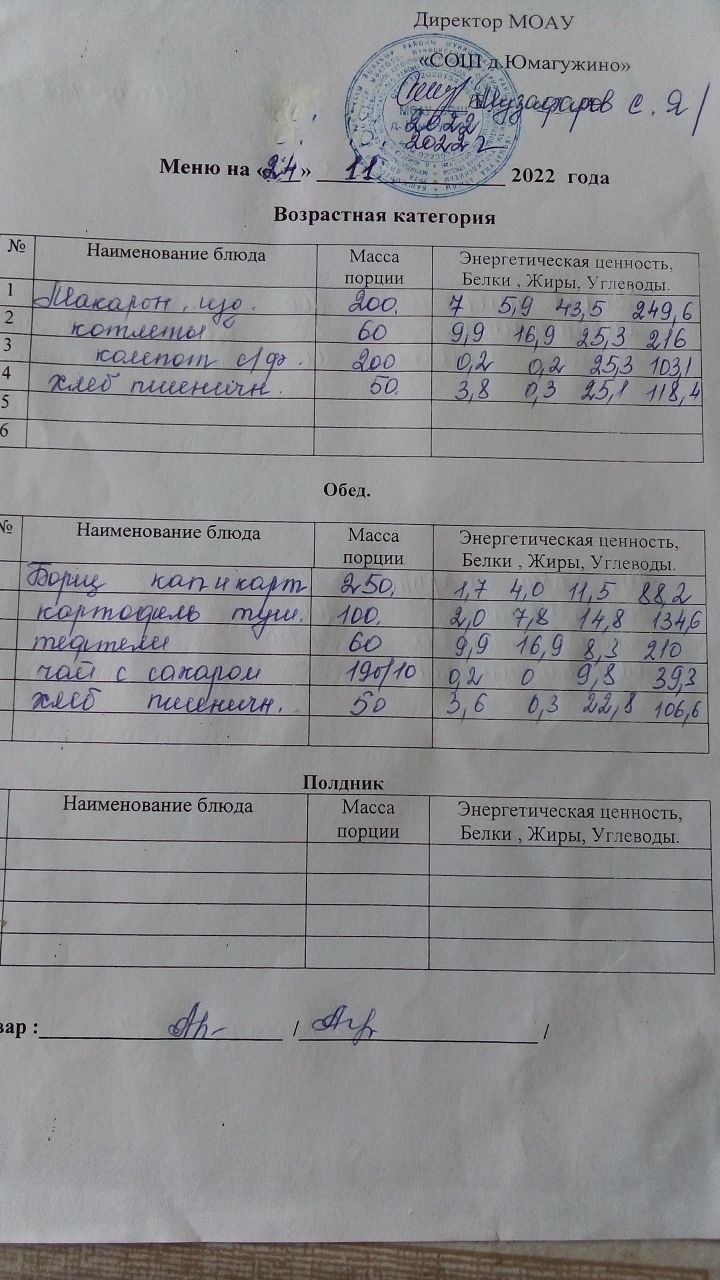 Директор МОАУ
«СОШ д.Юмагужино»
Музафаров С. Я/
2022
2022 г
Меню на «24» 11 2022 года
Возрастная категория
№ Наименование блюда Масса порции Энергетическая ценность, Белки , Жиры, Углеводы.
1 Макарон. изд. 200. 7 5,9 43,5 249,6
2 котлеты 60 9,9 16,9 25,3 216
3 компот с/ф. 200 0,2 0,2 25,3 103,1
4 хлеб пшеничн. 50. 3,8 0,3 25,1 118,4
5
6
Обед.
№ Наименование блюда Масса порции Энергетическая ценность, Белки , Жиры, Углеводы.
Борщ кап и карт 250. 1,7 4,0 11,5 88,2
картофель туш. 100. 2,0 7,8 14,8 134,6
тефтели 60 9,9 16,9 8,3 210
чай с сахаром 190/10 0,2 0 9,8 39,3
хлеб пшеничн. 50 3,6 0,3 22,8 106,6
Полдник
Наименование блюда Масса порции Энергетическая ценность, Белки , Жиры, Углеводы.
вар : / /